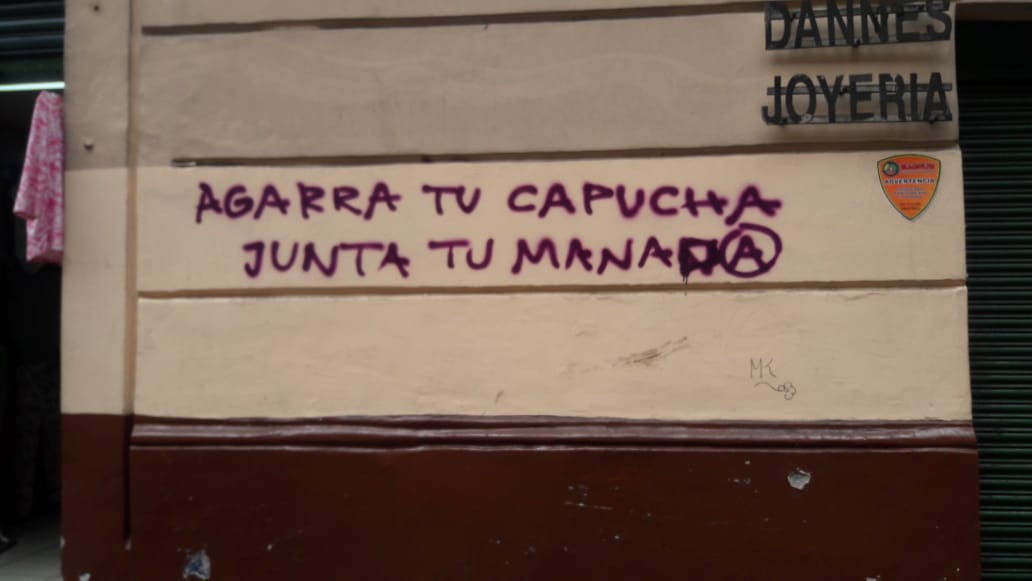 DANNES
JOYERIA
ADVERTENCIA
AGARRA TU CAPUCHA
JUNTA TU MANADA
MK